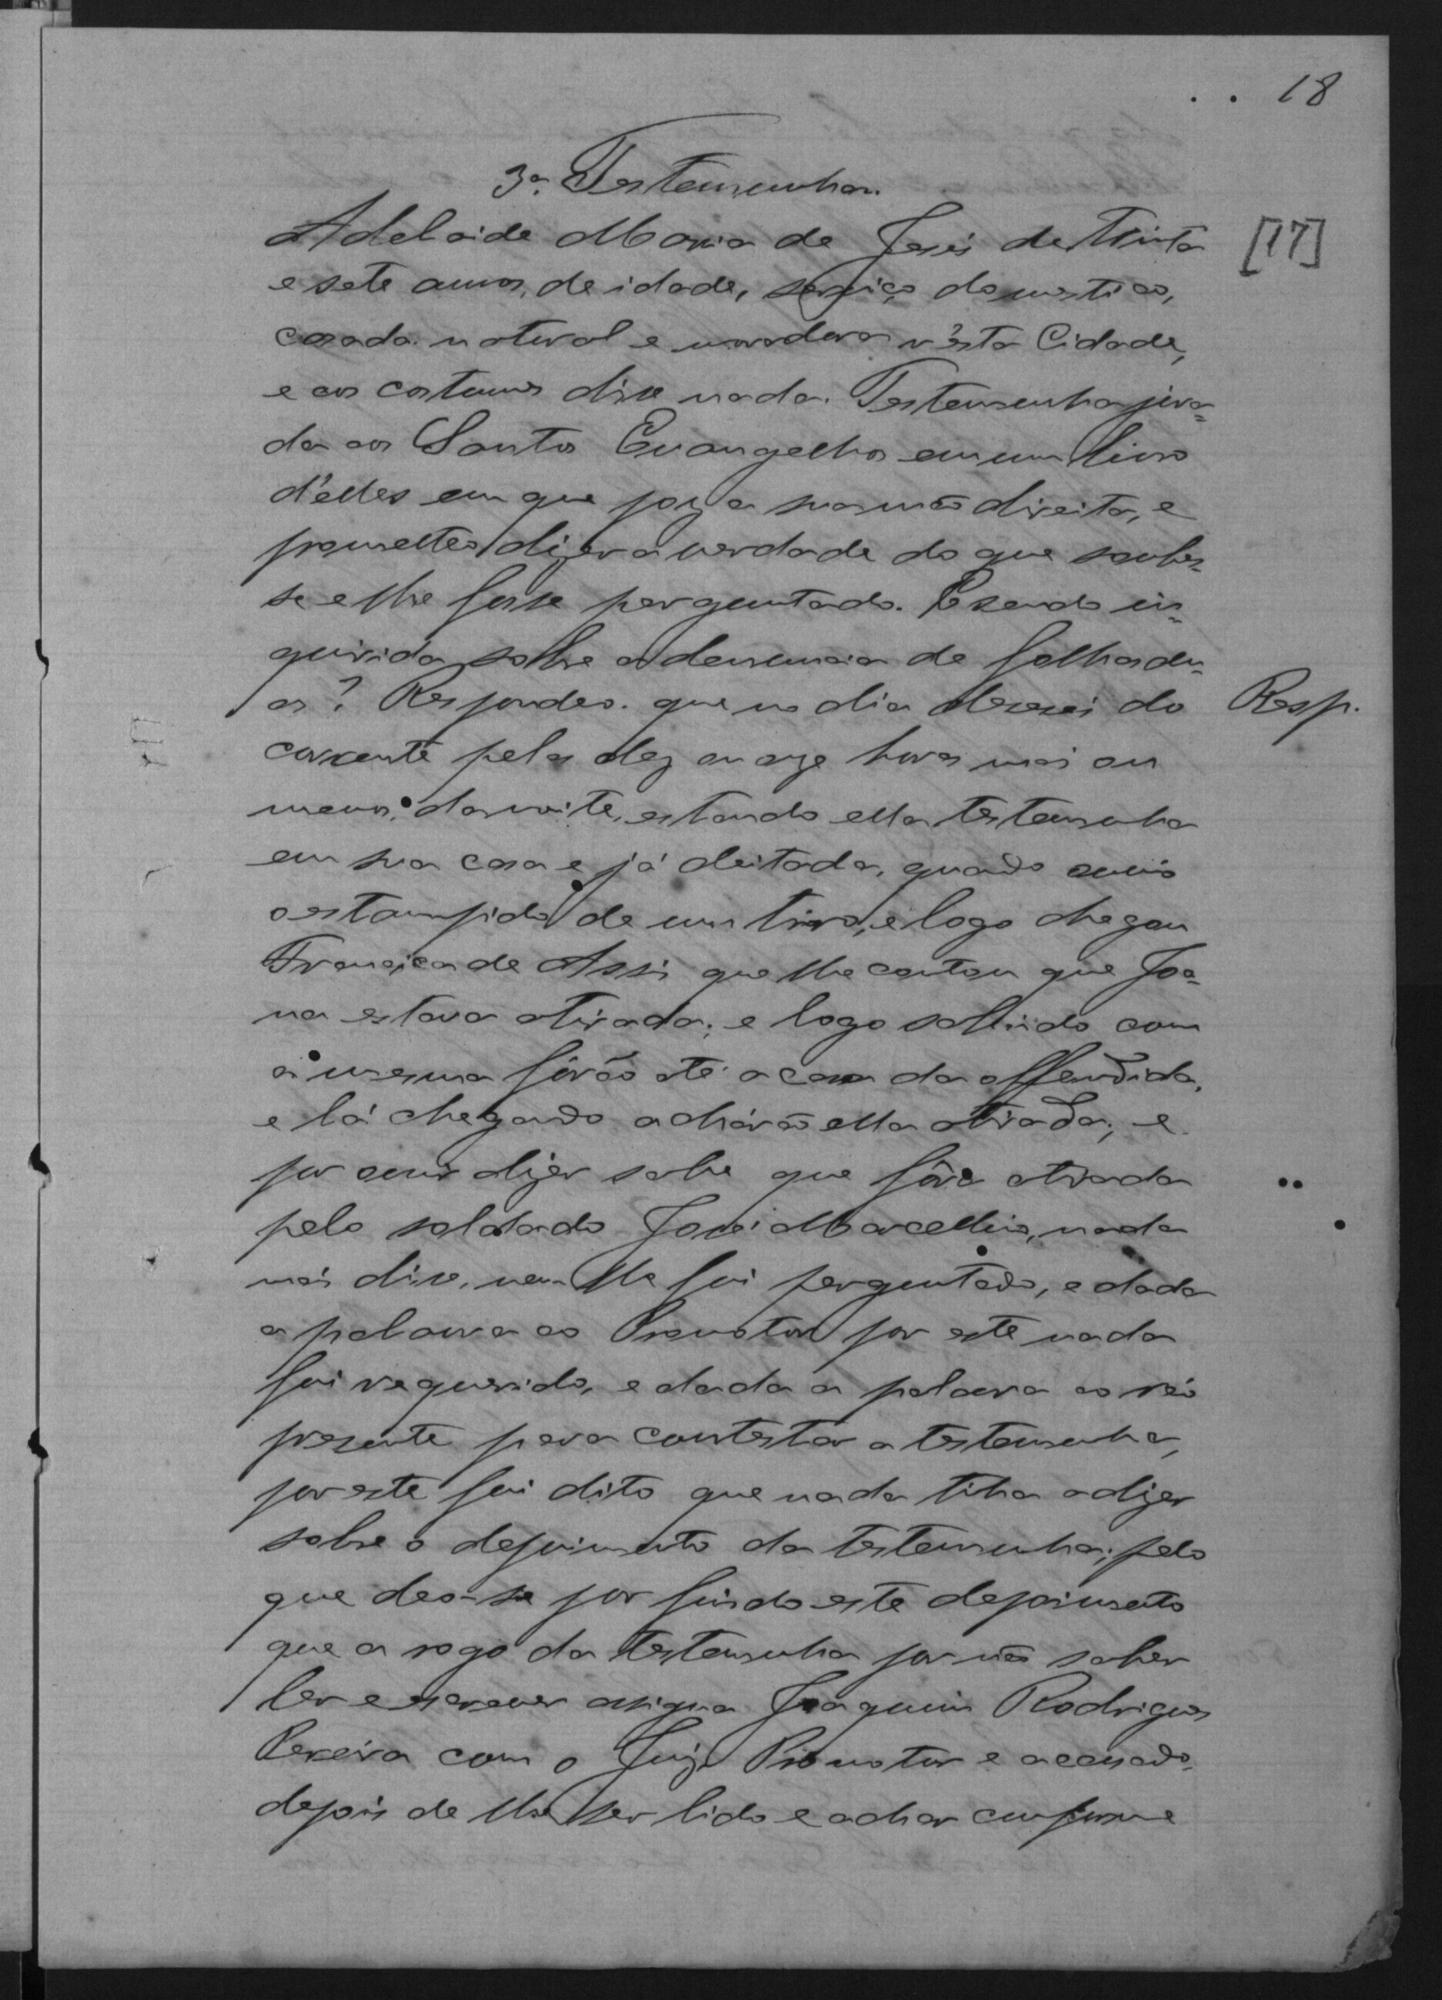 18
3ª. Testemunha.
Adelaide Maria de Jesus de trinta
[17]
e sete annos, de idade, serviço domestico,
casada natural e moradora n'esta Cidade,
e aos costumes disse nada. Testemunha jura=
da aos Santos Evangelhos em um livro
d'elles em que poz a sua mão direita, e
prometteo dizer a verdade do que soubes=
se e lhe fosse perguntado. E sendo in=
quirida sobre a denuncia de folhas du=
as? Respondeo. que no dia deseseis do
Resp.
corrente pelas dez ou onze horas mais ou
menos, da noite, estando ella testemunha
em sua casa e já deitada, quando ouvio
o estampido de um tiro, e logo chegou
Francisca de Assis que lhe contou que Joa=
na estava atirada; e logo sahindo com
a mesma fôrão até a casa da offendida,
e lá chegando achárão ella atirada; e
por ouvir dizer sabe que fôra atirada
pelo soldado José Marcellino, nada
mais disse, nem lhe foi perguntado, e dada
a palavra ao Promotor por este nada
foi requerido, e dada a palavra ao réo
presente para contestar a testemunha,
por este foi dito que nada tinha a dizer
sobre o depoimento da testemunha; pelo
que deo-se por findo este depoimento
que a rogo da testemunha por não saber
ler e escrever assigna Joaquim Rodrigues
Pereira com o Juiz Promotor e accusado,
depois de lhe ser lido e achar conforme